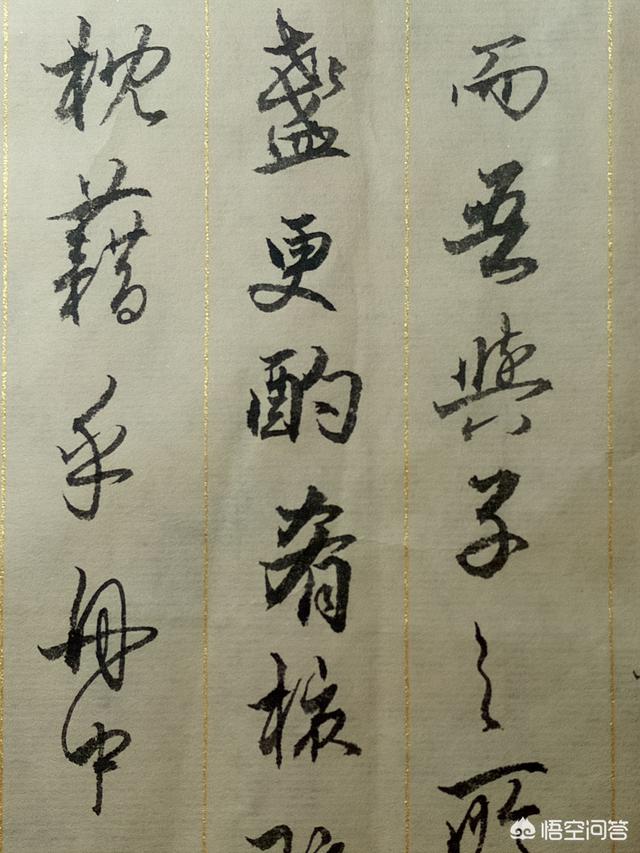 而吾與子之所
盞更酌肴核
枕藉乎舟中
悟空问答